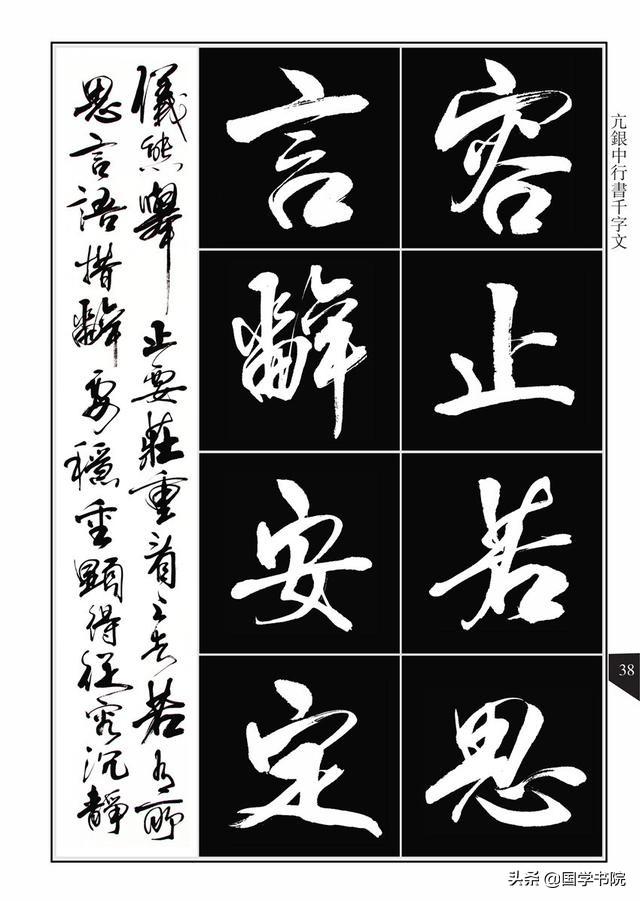 亢銀中行書千字文
容止若思
言辭安定
儀態舉止要莊重看上去若有所
思言語措辭要穩重顯得從容沉靜
38
头条 @国学书院